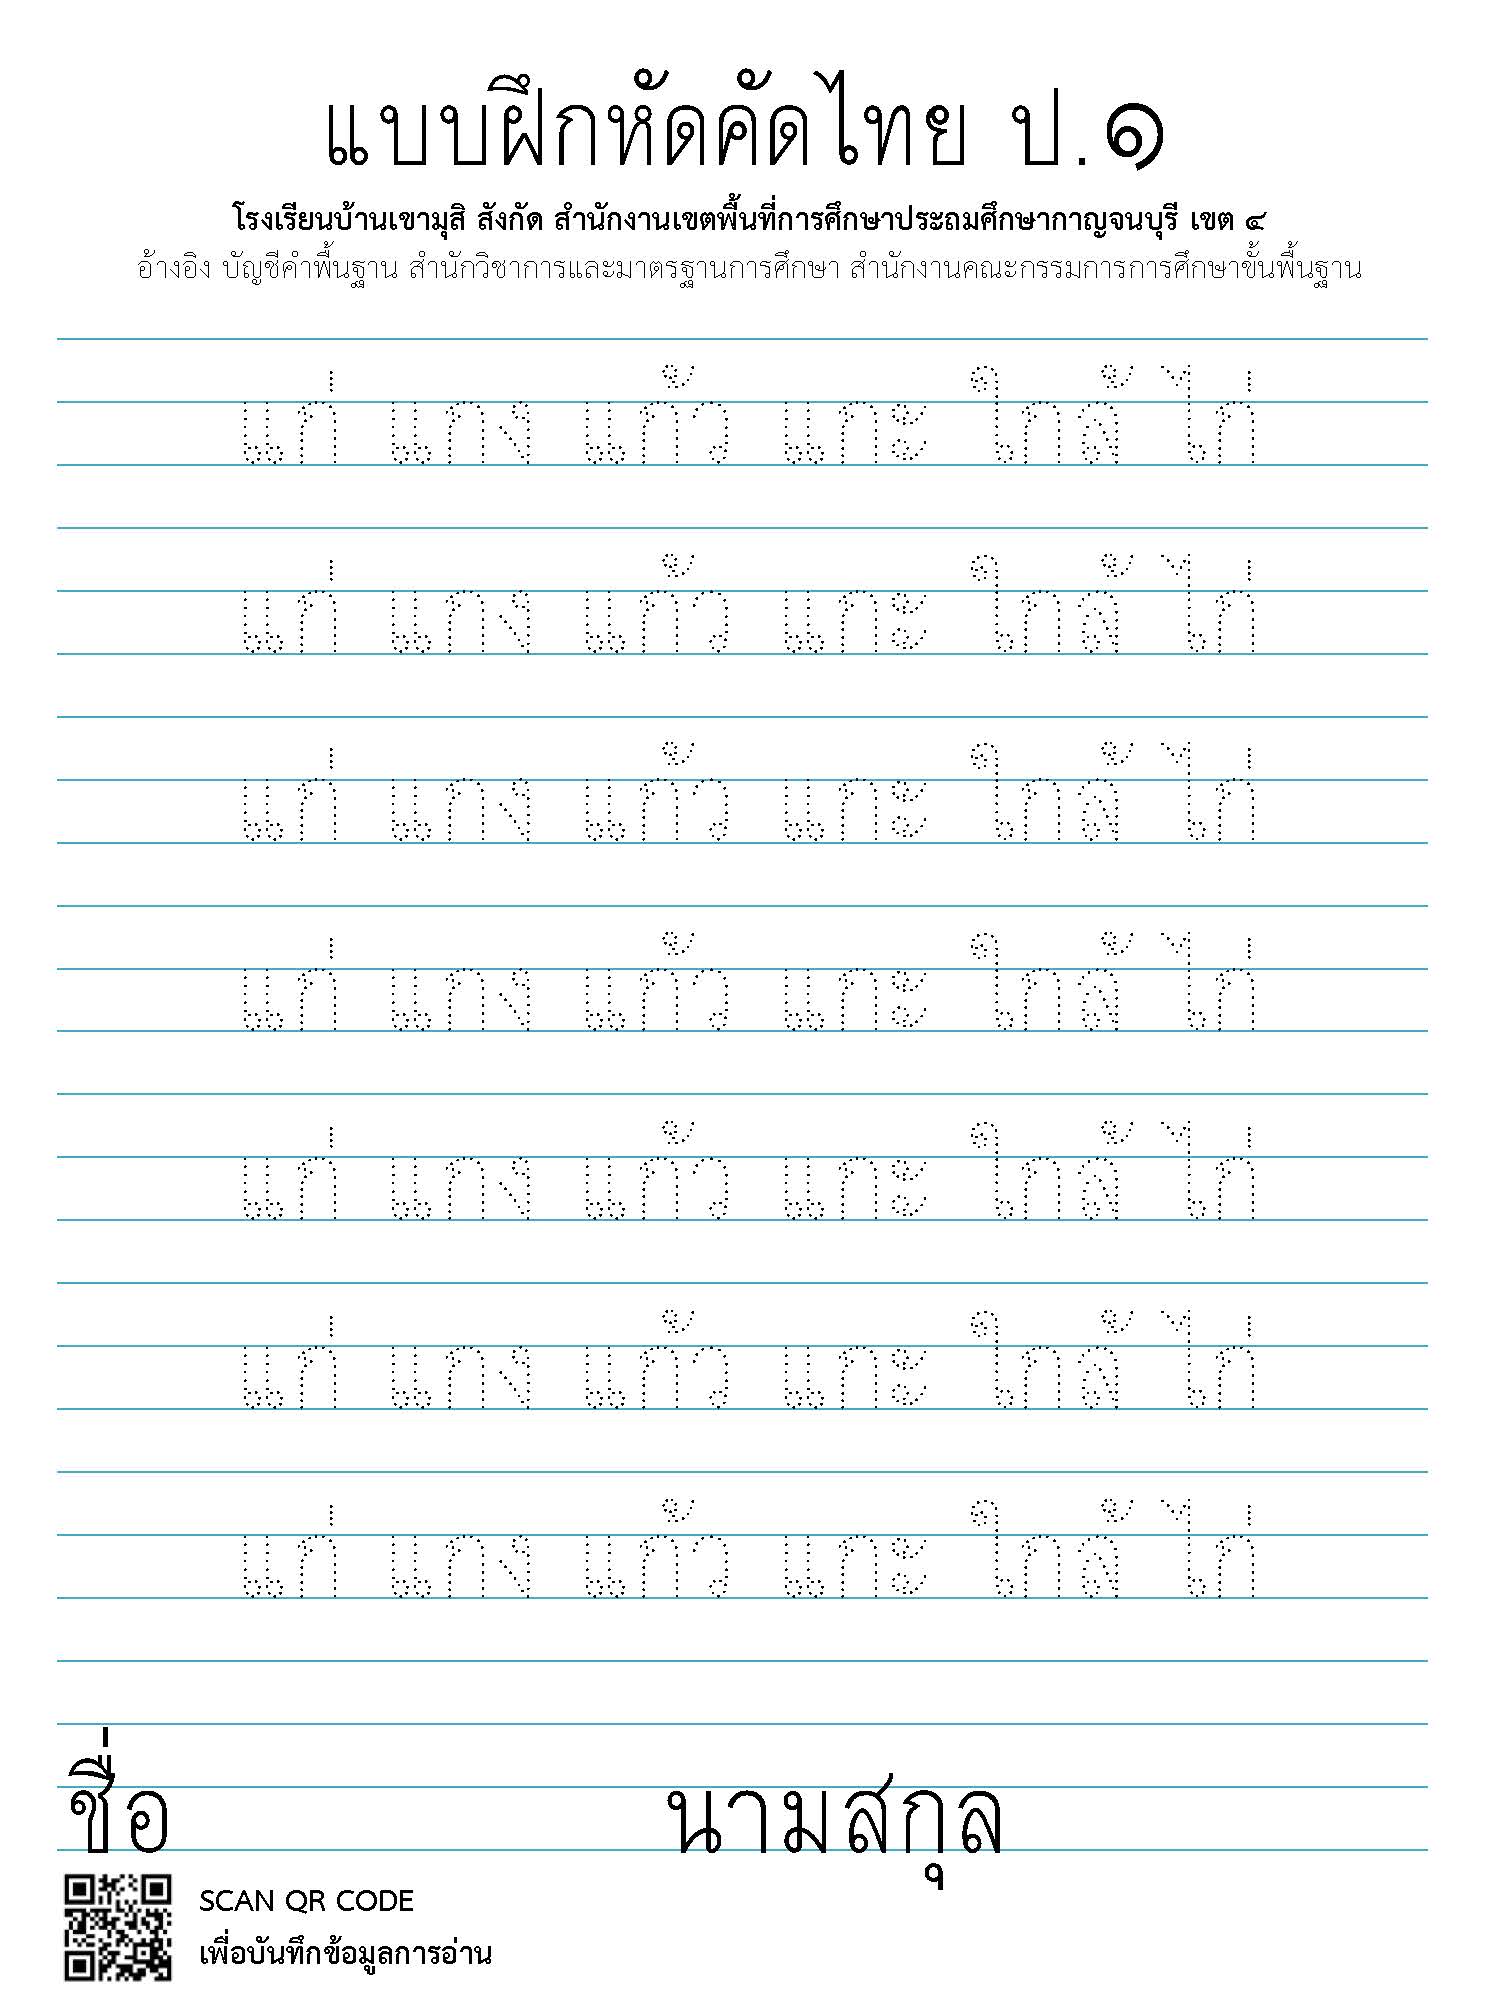 แบบฝึกหัดคัดไทย ป.๑
โรงเรียนบ้านเขามุสิ สังกัด สำนักงานเขตพื้นที่การศึกษาประถมศึกษากาญจนบุรี เขต ๔
อ้างอิง บัญชีคำพื้นฐาน สำนักวิชาการและมาตรฐานการศึกษา สำนักงานคณะกรรมการการศึกษาขั้นพื้นฐาน
แก่ แกง แก้ว แกะ ใกล้ ไก่
แก่ แกง แก้ว แกะ ใกล้ ไก่
แก่ แกง แก้ว แกะ ใกล้ ไก่
แก่ แกง แก้ว แกะ ใกล้ ไก่
แก่ แกง แก้ว แกะ ใกล้ ไก่
แก่ แกง แก้ว แกะ ใกล้ ไก่
แก่ แกง แก้ว แกะ ใกล้ ไก่
ชื่อ นามสกุล
SCAN QR CODE
เพื่อบันทึกข้อมูลการอ่าน